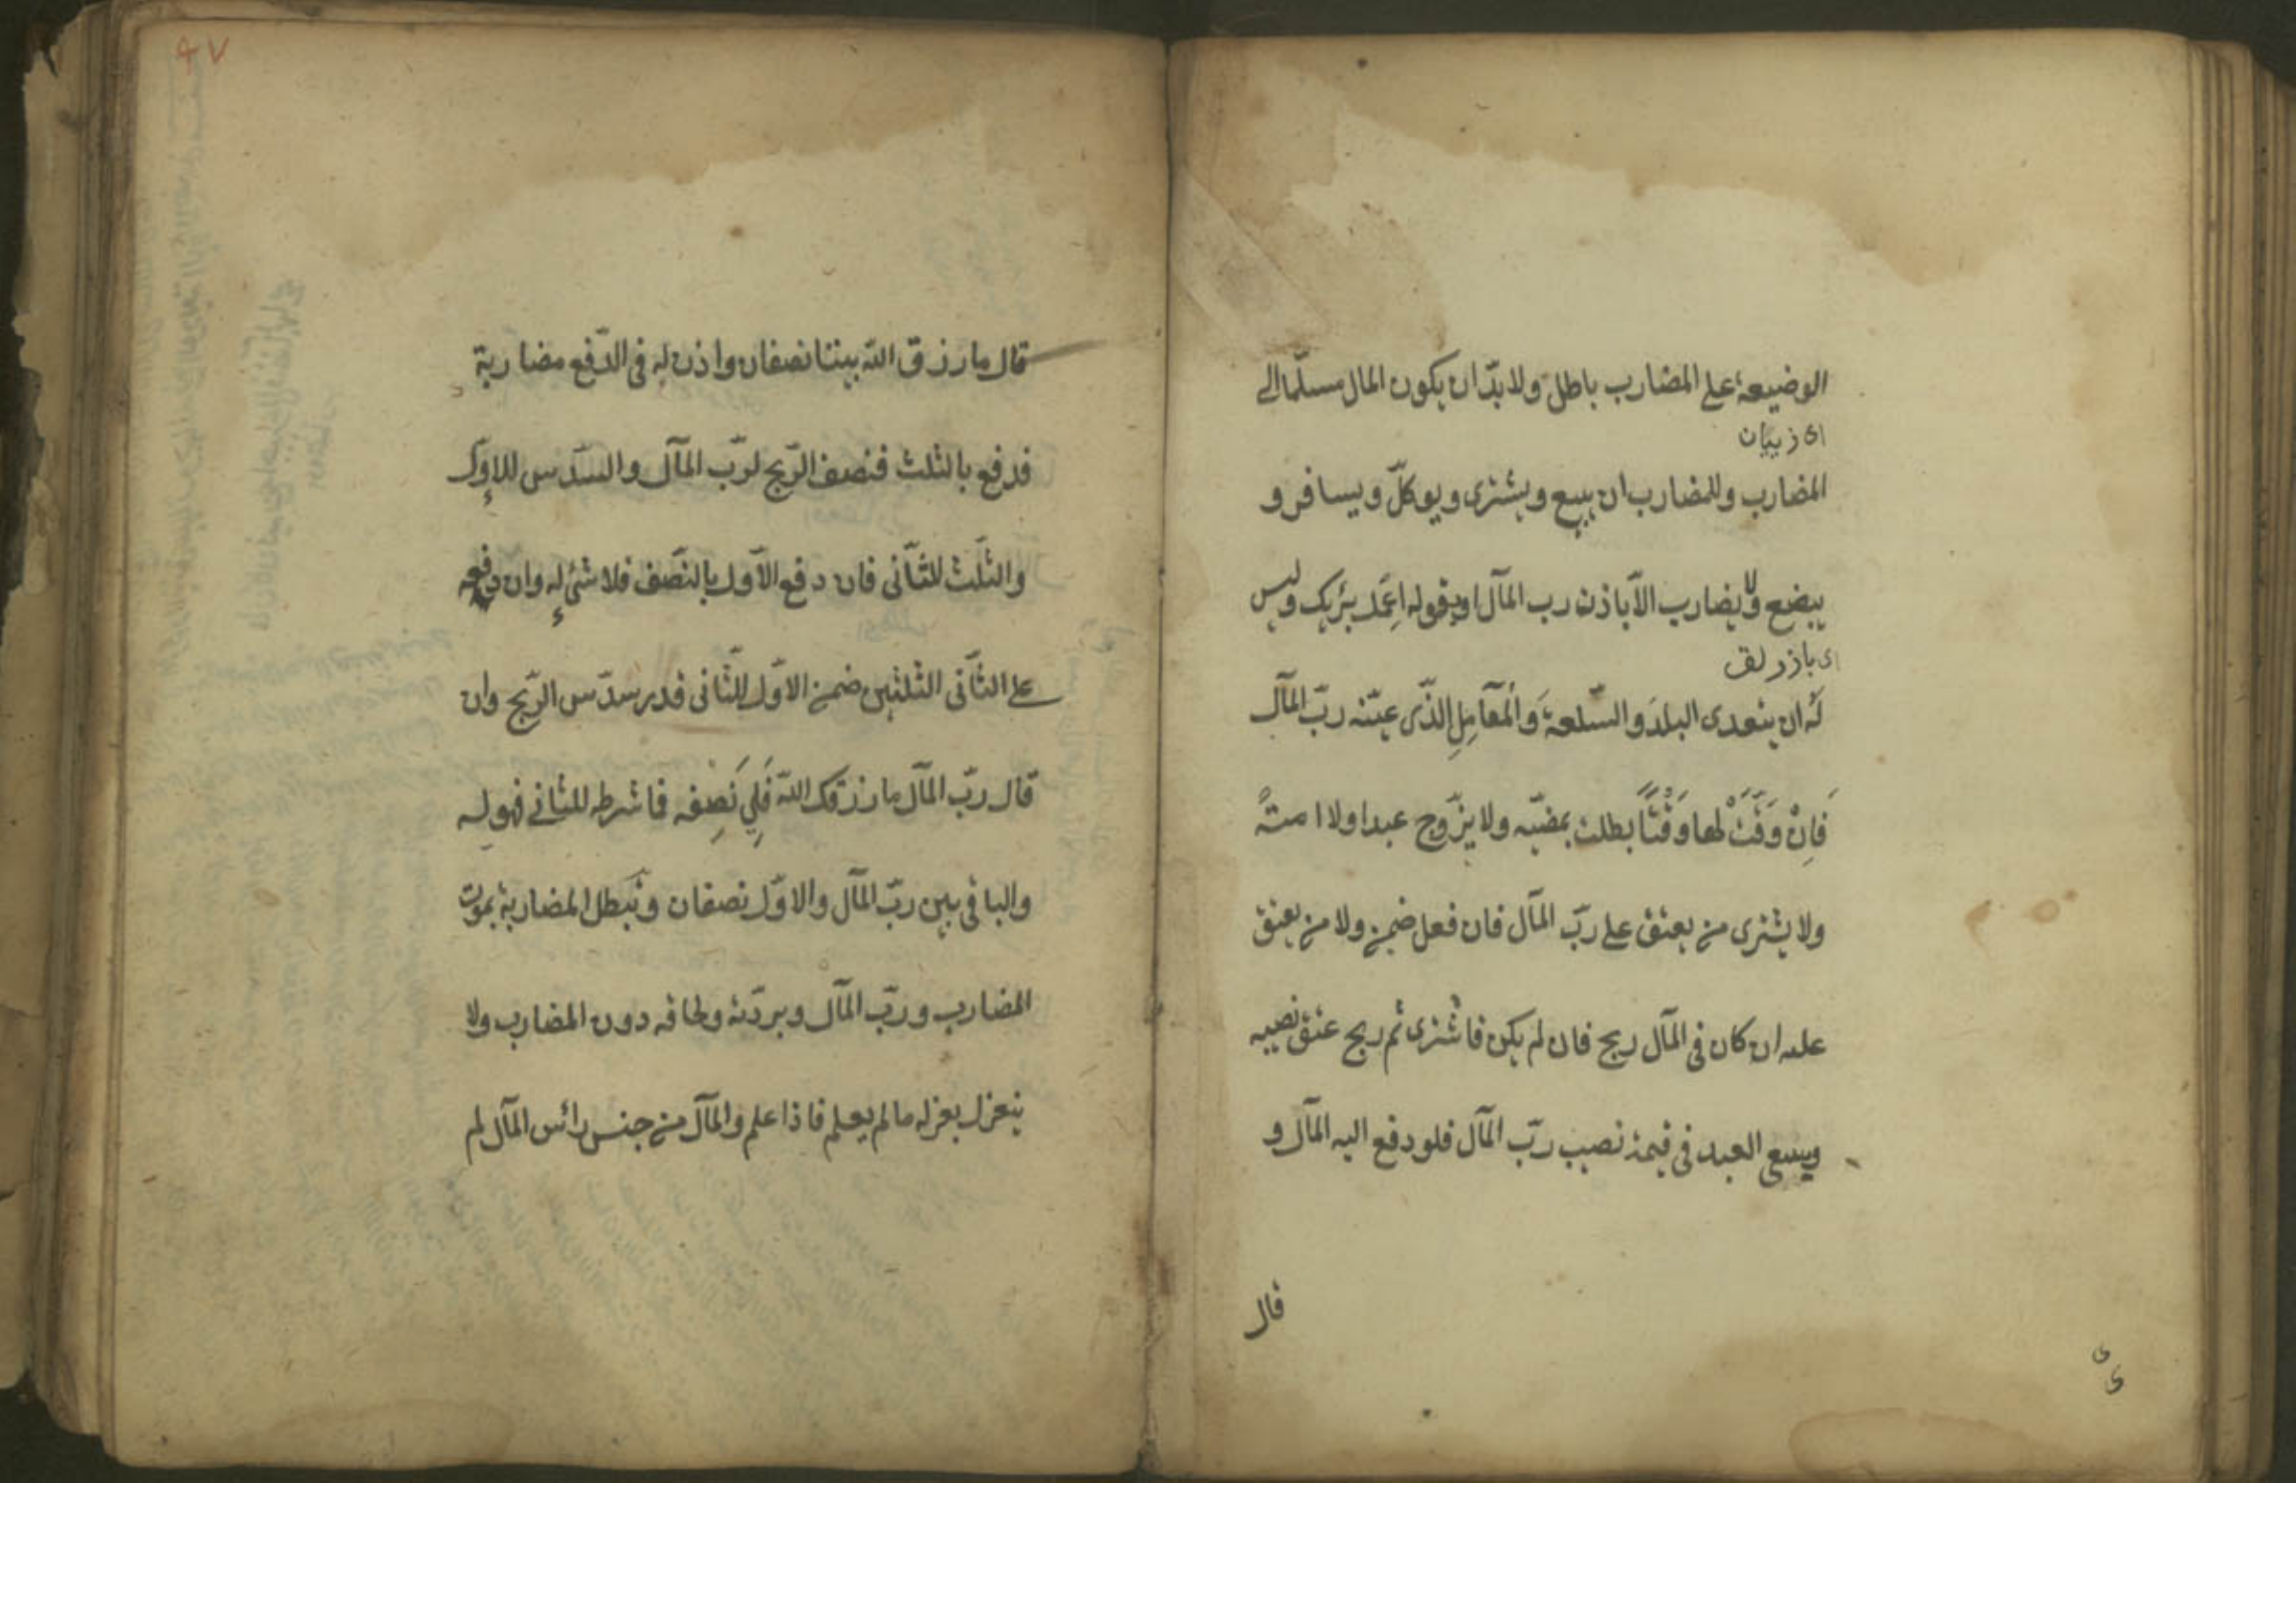 الوضيعة على المضارب باطل ولا بدّ ان يكون المال مسلّما الى
اى زيان
المضارب وللمضارب ان يبيع ويشترى ويوكلّ ويسافر و
يبضع ولا يضارب الّا باذن رب المآل او بقوله اِعْمَل برَيك وليس
لَه ان يتعدى البلدَ والسّلعةَ وَالمعَآمِلِ الذّى عيّنه ربّ المآل
فَاِنْ وَقَّتَ لها وَقْتًا بطلت بمضيّه ولا يزّوج عبدا ولا امتةً
ولا يشترى من يعتق على ربّ المآل فان فعل ضمن ولا من يعتق
عليه ان كان فى المآل ربح فان لم يكن فاشترى ثم ربح عتق نصيبه
ويسعى العبد فى قيمة نصيب ربّ المآل فلو دفع اليه المآل و
قال
٩٧
قال ما رزق اللّه بيننا نصفان واذن له فى الدّفع مضاربة
فدفع بالثلث فنصف الرّبح لربّ المآل والسّدس للاوّل
والثلّث للثّآنى فان دفع الاّول بالنصّف فلا شئ له وان دفعه
على الثّآنى الثلثين ضمن الاوّل للثّآنى قدر سدّس الرّبح وان
قال ربّ المآل ما رزقك اللّه فَلِي نَصِفه فاشرطه للثانى فهو له
والباقى بين ربّ المآل والاوّل نصفان وتبطل المضاربة بموت
المضارب وربّ المآل وبردّته ولحاقه دون المضارب ولا
ينعزل بعزله مالم يعلم فاذا علم والمآل من جنس رائس المآل لم